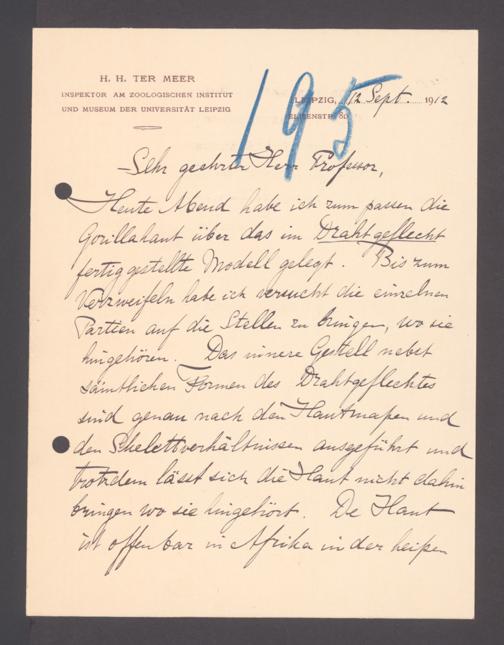 H. H. TER MEER
INSPEKTOR AM ZOOLOGISCHEN INSTITUT
UND MUSEUM DER UNIVERSITÄT LEIPZIG
LEIPZIG, 12 Sept. 1912
195
Sehr geehrter Herr Professor,
Heute Abend habe ich zum passen die
Gorillahaut über das im Drahtgeflecht
fertiggestellte Modell gelegt. Bis zum
Verzweifeln habe ich versucht die einzelnen
Partien auf die Stellen zu bringen, wo sie
hingehören. Das innere Gestell nebst
sämtlichen Formen des Drahtgeflechtes
sind genau nach den Hautmaßen und
den Skelettverhältnissen ausgeführt und
trotzdem lässt sich die Haut nicht dahin
bringen wo sie hingehört. De Haut
ist offenbar in Afrika in der heißen